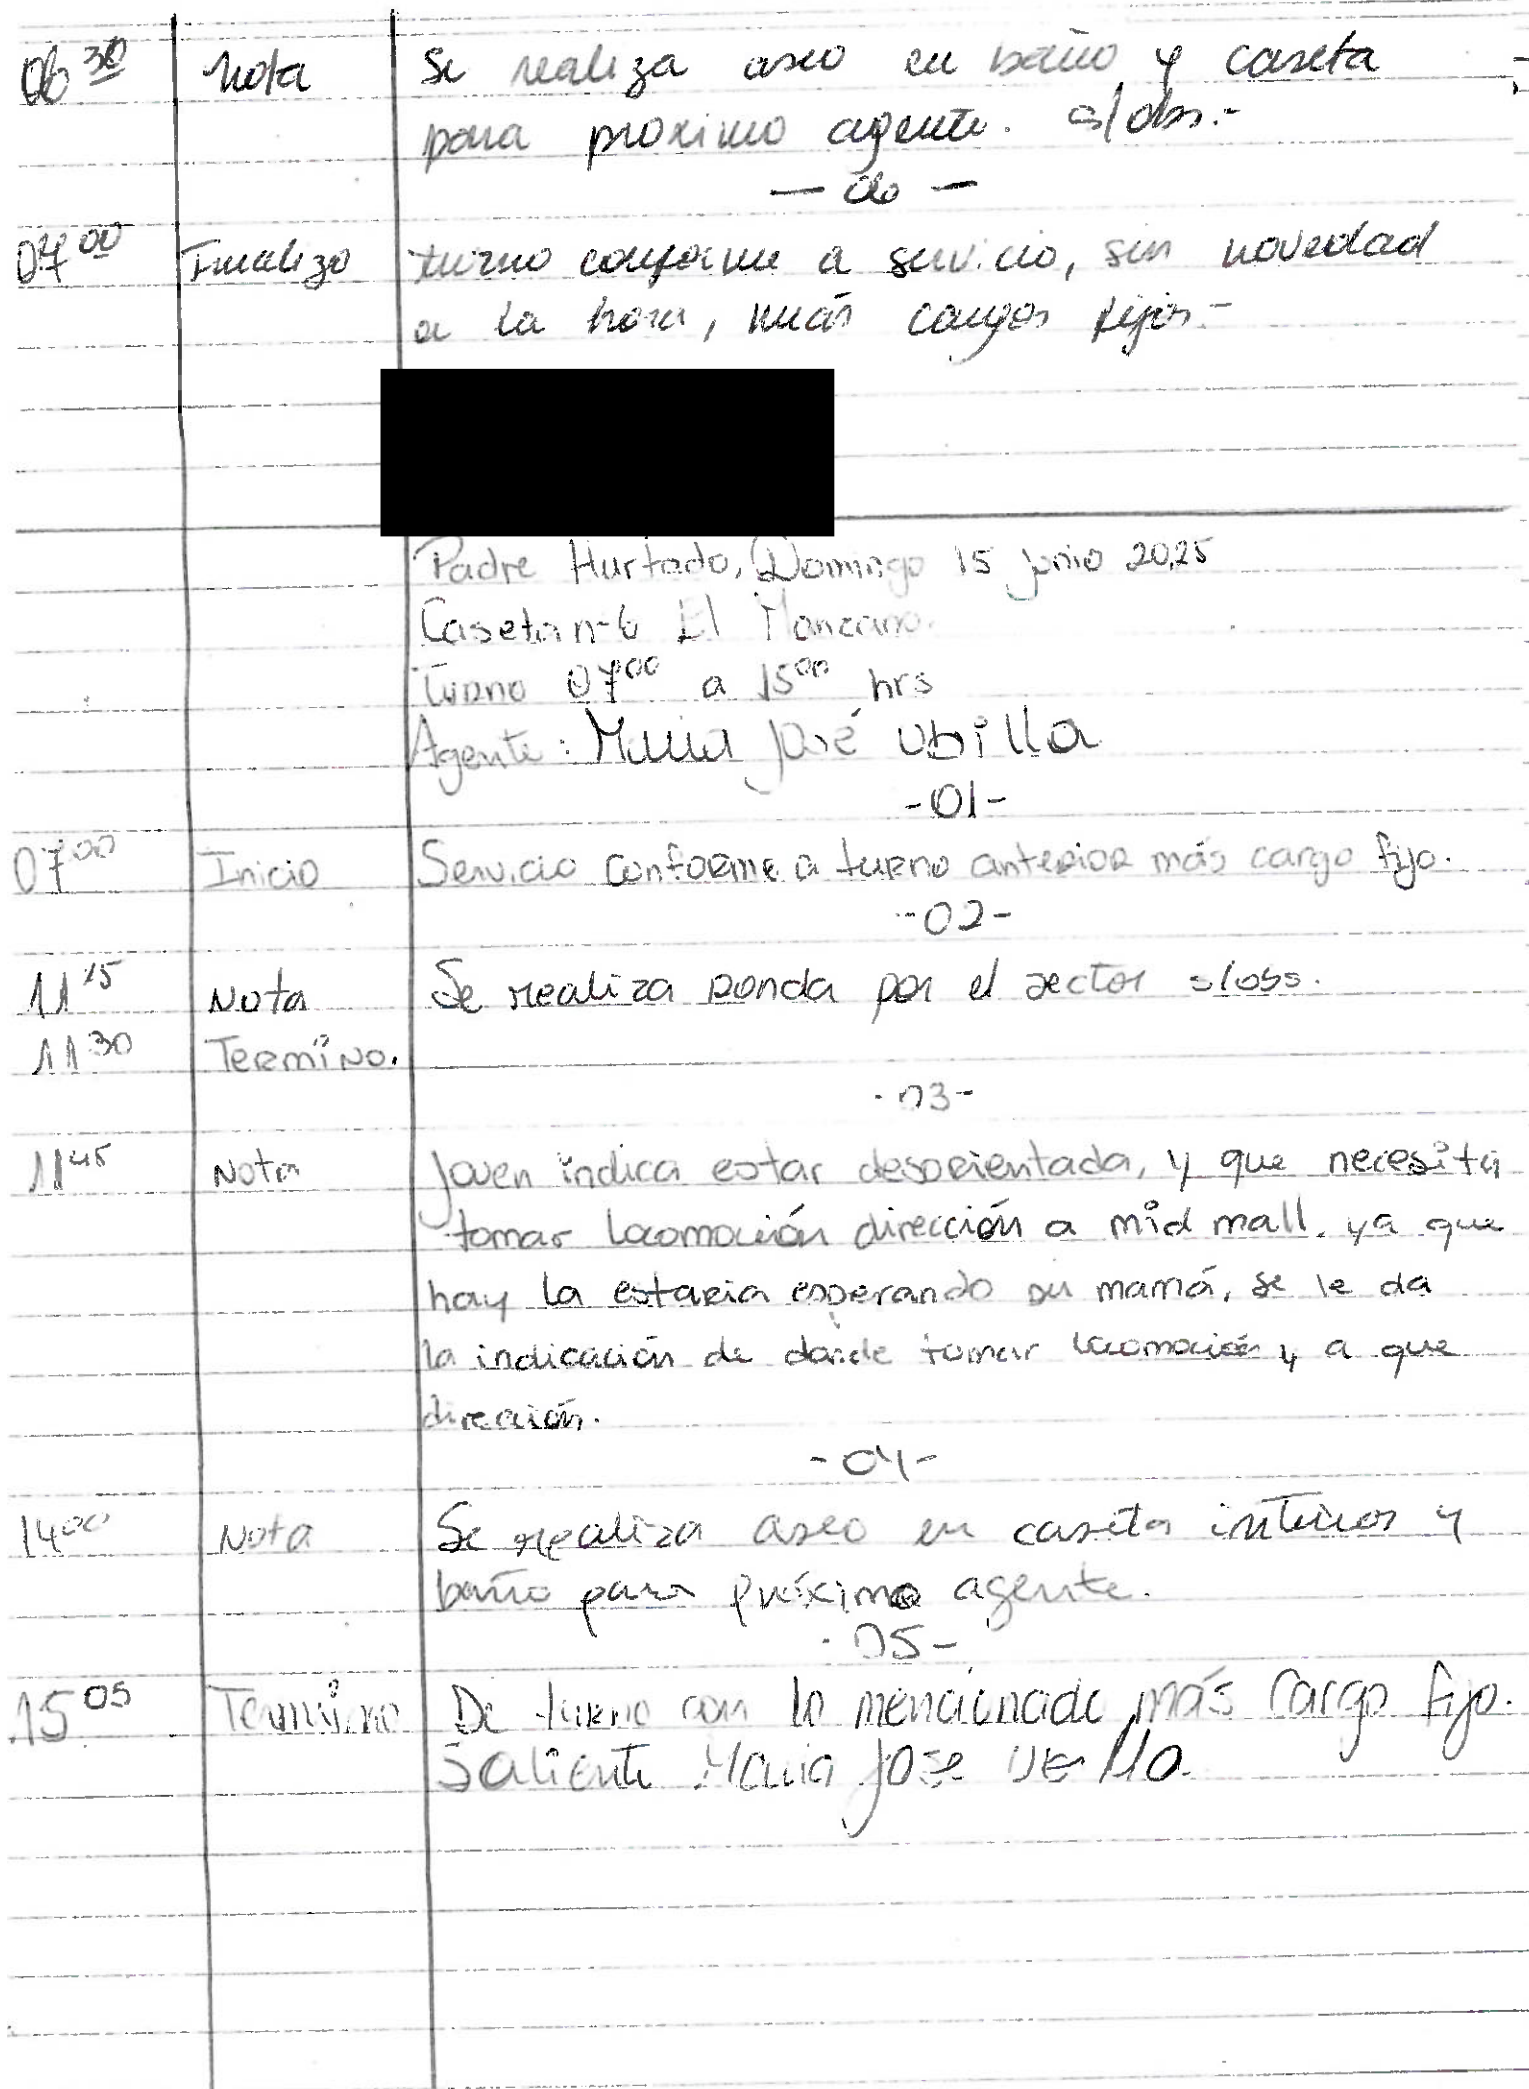 06 30 Nota Se realiza aseo en baño y caseta
para proximo agente. s/obs.-
— 06 —
07 00 Finalizo turno conforme a servicio, sin novedad
a la hora, más cargos fijos.-
Padre Hurtado, Domingo 15 junio 2025
Caseta n-6 El Manzano.
Turno 07 00 a 15 00 hrs
Agente: Maria José Ubilla
-01-
07 00 Inicio Servicio conforme a turno anterior más cargo fijo.
-02-
11 15 Nota Se realiza ronda por el sector s/obs.
11 30 Termino.
-03-
11 45 Nota Joven indica estar desorientada, y que necesita
tomar locomoción dirección a mid mall. ya que
hay la estaria esperando su mamá, se le da
la indicación de donde tomar locomoción y a que
dirección.
-04-
14 00 Nota Se realiza aseo en caseta interior y
baño para próximo agente.
-05-
15 05 Termino De turno con lo mencionado más cargo fijo.
Saliente Maria Jose Ubilla